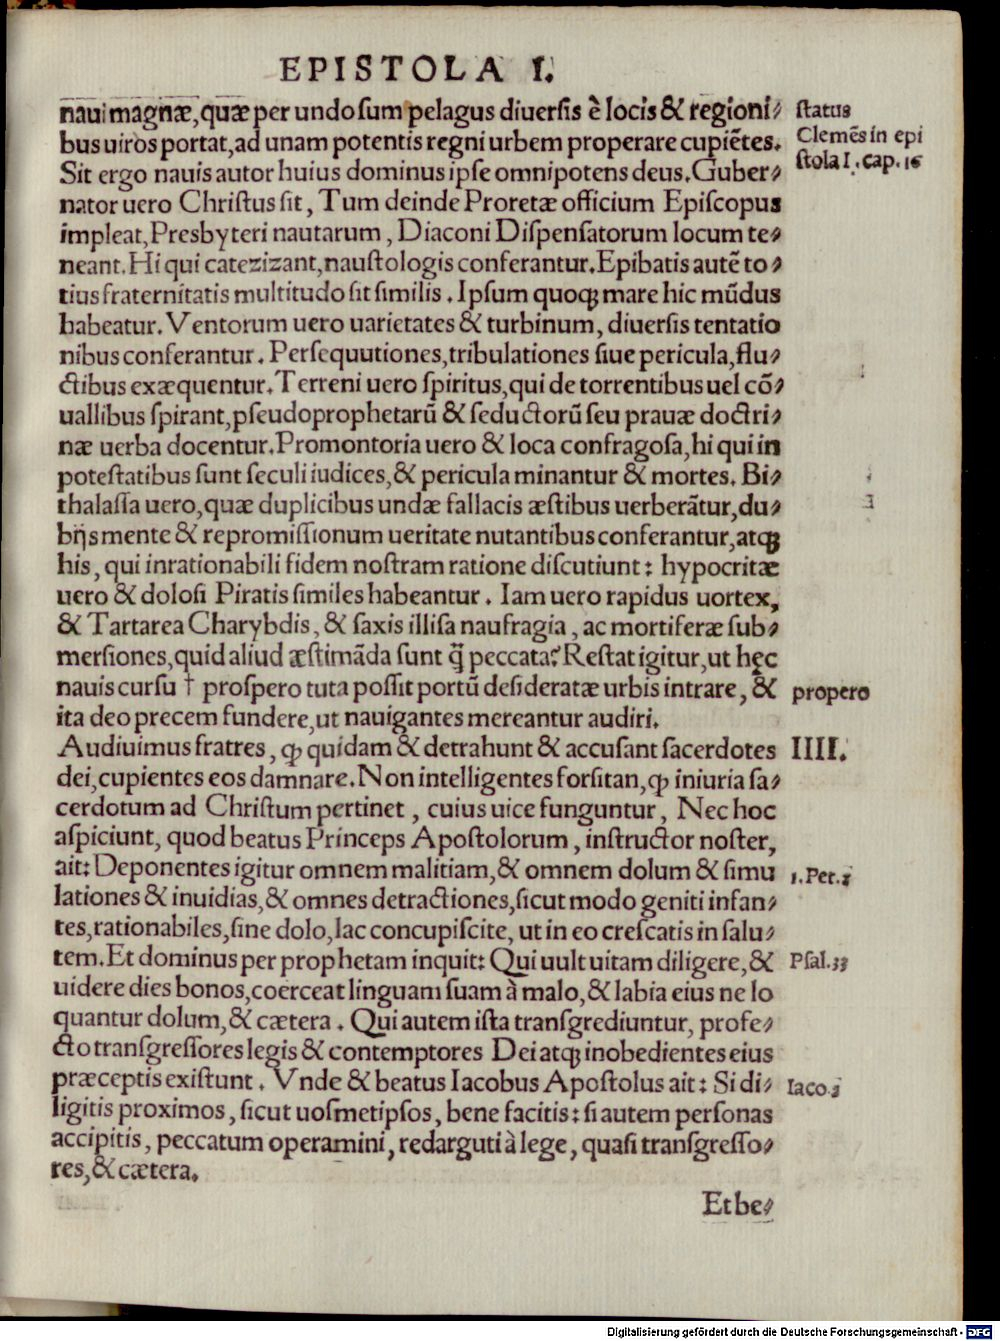 EPISTOLA I.
naui magnæ, quæ per undosum pelagus diuersis è locis & regioni⸗
status
bus uiros portat, ad unam potentis regni urbem properare cupiẽtes.
Clemẽs in epi
Sit ergo nauis autor huius dominus ipse omnipotens deus. Guber⸗
stola I. cap. 16
nator uero Christus sit, Tum deinde Proretæ officium Episcopus
impleat, Presbyteri nautarum, Diaconi Dispensatorum locum te⸗
neant. Hi qui catezizant, naustologis conferantur. Epibatis autẽ to⸗
tius fraternitatis multitudo sit similis. Ipsum quoqꝫ mare hic mũdus
habeatur. Ventorum uero uarietates & turbinum, diuersis tentatio
nibus conferantur. Persequutiones, tribulationes siue pericula, flu⸗
ctibus exæquentur. Terreni uero spiritus, qui de torrentibus uel cõ⸗
uallibus spirant, pseudoprophetarũ & seductorũ seu prauæ doctri⸗
næ uerba docentur. Promontoria uero & loca confragosa, hi qui in
potestatibus sunt seculi iudices, & pericula minantur & mortes. Bi⸗
thalassa uero, quæ duplicibus undæ fallacis æstibus uerberãtur, du⸗
bijs mente & repromissionum ueritate nutantibus conferantur, atqꝫ
his, qui inrationabili fidem nostram ratione discutiunt: hypocritæ
uero & dolosi Piratis similes habeantur. Iam uero rapidus uortex,
& Tartarea Charybdis, & saxis illisa naufragia, ac mortiferæ sub⸗
mersiones, quid aliud æstimãda sunt q̃ peccata? Restat igitur, ut hęc
nauis cursu † prospero tuta possit portũ desideratæ urbis intrare, &
propero
ita deo precem fundere, ut nauigantes mereantur audiri.
Audiuimus fratres, ꝙ quidam & detrahunt & accusant sacerdotes
IIII.
dei, cupientes eos damnare. Non intelligentes forsitan, ꝙ iniuria sa⸗
cerdotum ad Christum pertinet, cuius uice funguntur, Nec hoc
aspiciunt, quod beatus Princeps Apostolorum, instructor noster,
ait: Deponentes igitur omnem malitiam, & omnem dolum & simu
1. Pet. 2
lationes & inuidias, & omnes detractiones, sicut modo geniti infan⸗
tes, rationabiles, sine dolo, lac concupiscite, ut in eo crescatis in salu⸗
tem. Et dominus per prophetam inquit: Qui uult uitam diligere, &
Psal. 33
uidere dies bonos, coerceat linguam suam à malo, & labia eius ne lo
quantur dolum, & cætera. Qui autem ista transgrediuntur, profe⸗
cto transgressores legis & contemptores Dei atqꝫ inobedientes eius
præceptis existunt. Vnde & beatus Iacobus Apostolus ait: Si di⸗
Iaco. 2
ligitis proximos, sicut uosmetipsos, bene facitis: si autem personas
accipitis, peccatum operamini, redarguti à lege, quasi transgresso⸗
res, & cætera.
Et be⸗
Digitalisierung gefördert durch die Deutsche Forschungsgemeinschaft - DFG